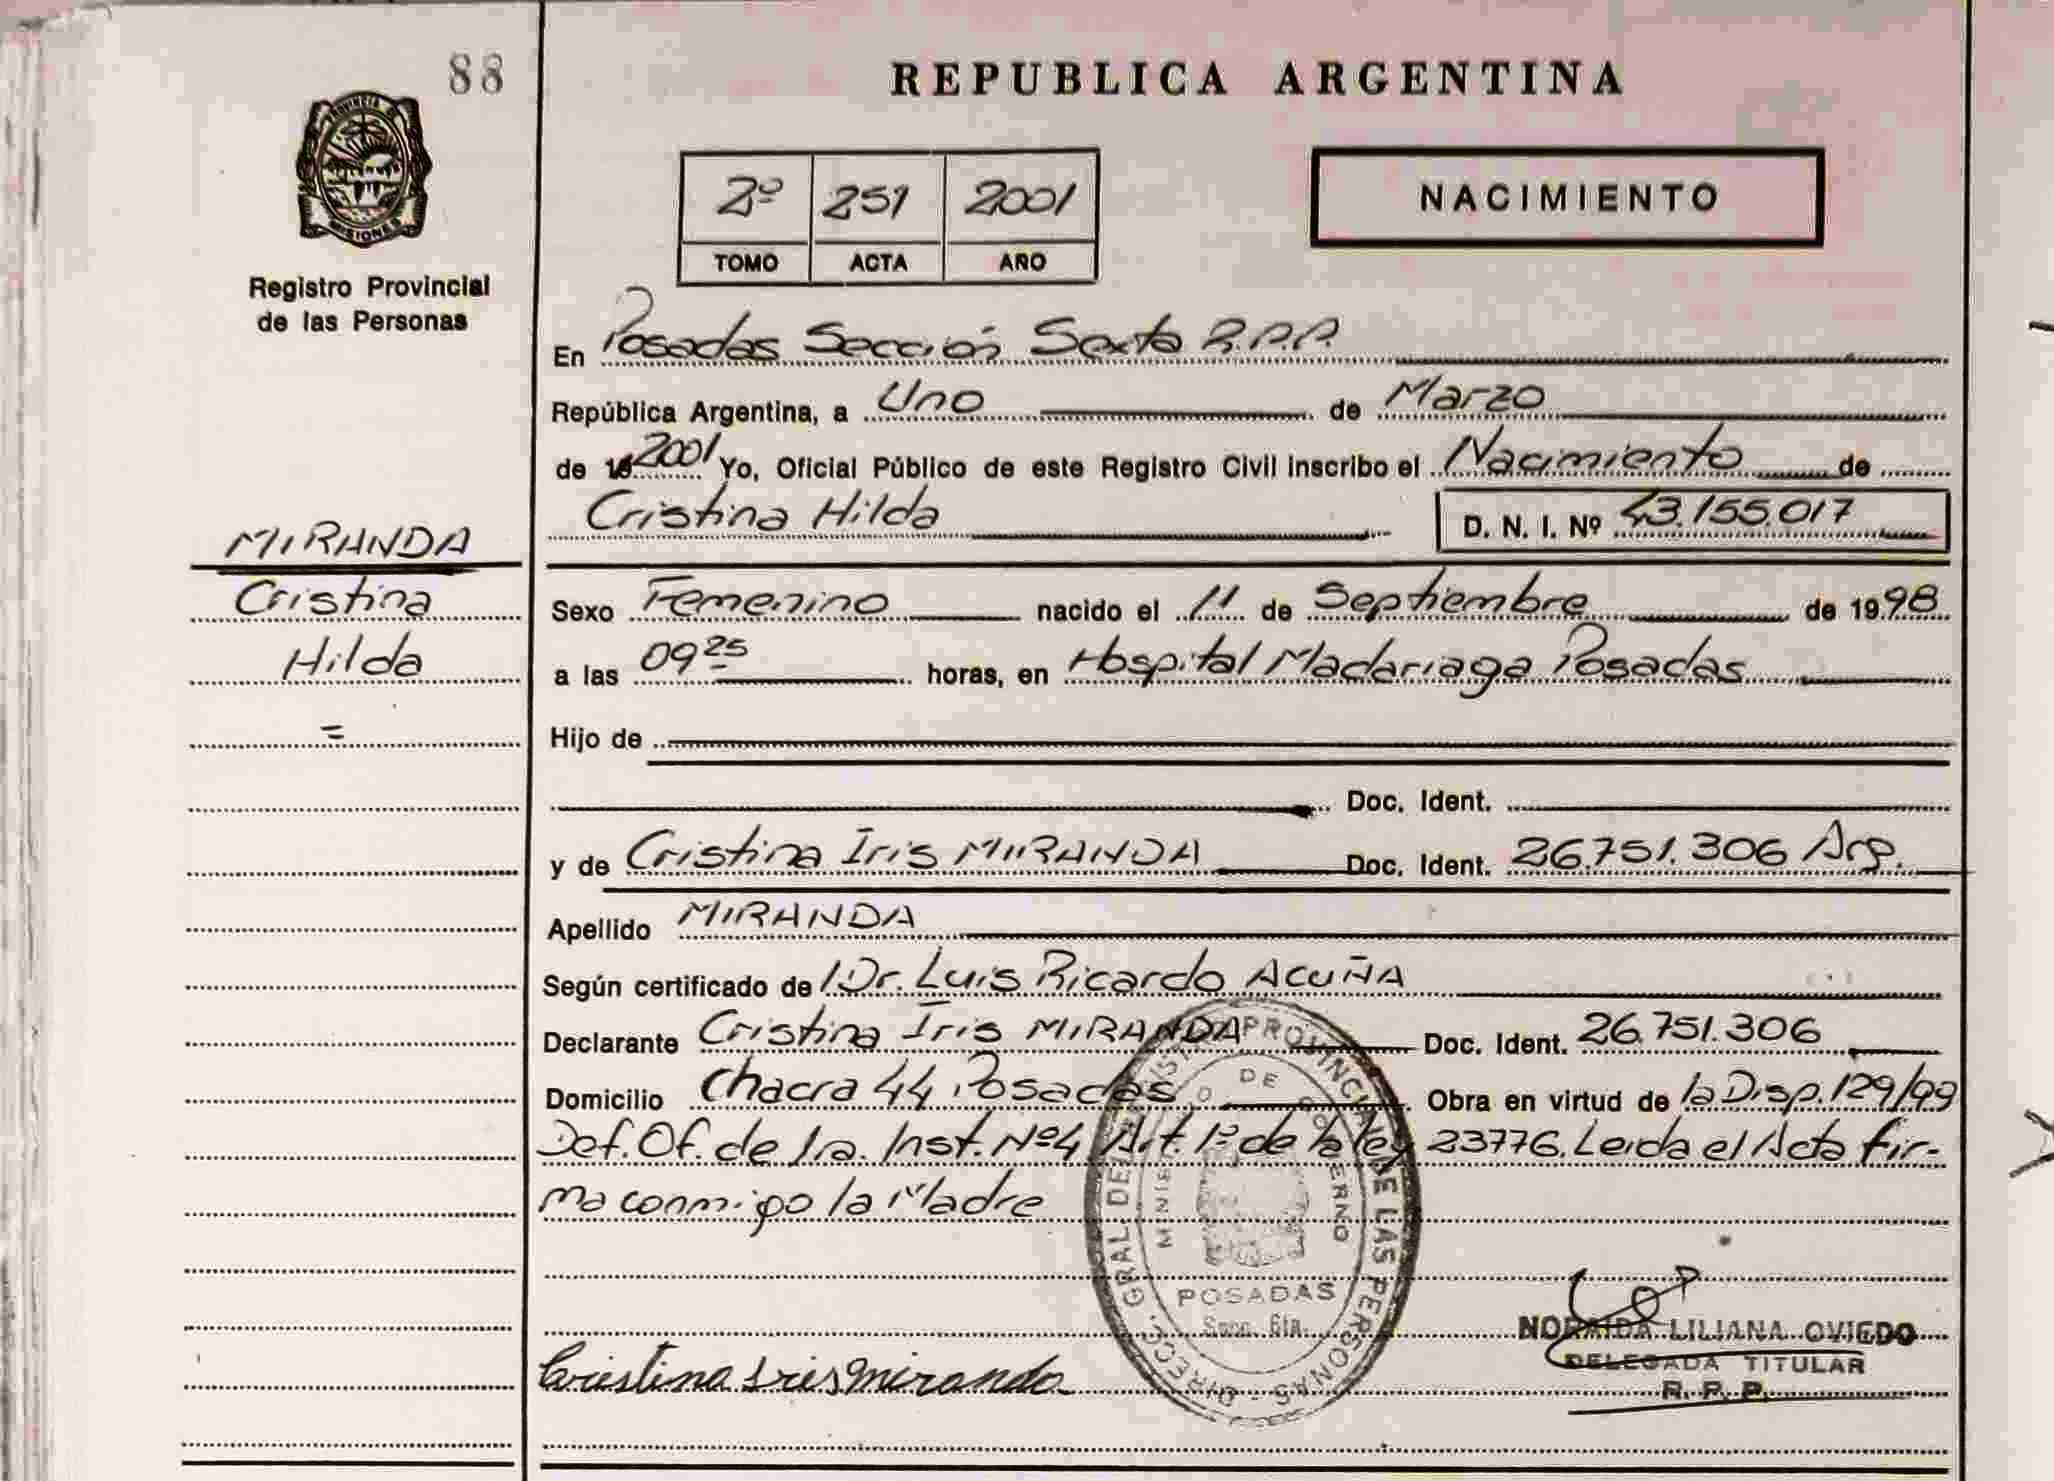 88
REPUBLICA ARGENTINA
PROVINCIA DE
MISIONES
Registro Provincial
de las Personas
2º 251 2001
TOMO ACTA AÑO
NACIMIENTO
En Posadas Sección Sexta R.P.P.
República Argentina, a Uno de Marzo
de 19 2001 Yo, Oficial Público de este Registro Civil inscribo el Nacimiento de
Cristina Hilda D. N. I. Nº 43.155.017
MIRANDA
Cristina
Hilda
=
Sexo Femenino nacido el 11 de Septiembre de 1998
a las 09 25 horas, en Hospital Madariaga Posadas
Hijo de
Doc. Ident.
y de Cristina Iris MIRANDA Doc. Ident. 26.751.306 Arg.
Apellido MIRANDA
Según certificado de Dr. Luis Ricardo ACUÑA
Declarante Cristina Iris MIRANDA Doc. Ident. 26.751.306
Domicilio Chacra 44 Posadas Obra en virtud de la Disp. 129/99
Def. Of. de 1ra. Inst. Nº4 Art. 1º de la ley 23776. Leida el Acta fir-
ma conmigo la Madre
DIRECC. GRAL DEL REGISTRO PROVINCIAL DE LAS PERSONAS
MINISTERIO DE GOBIERNO
POSADAS
Secc. 6ta.
NORAIDA LILIANA OVIEDO
DELEGADA TITULAR
R. P. P.
Cristina Iris Miranda